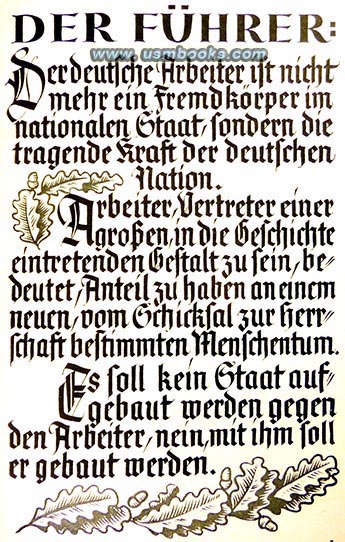 DER FÜHRER:
www.usmbooks.com
Der deutsche Arbeiter ist nicht
mehr ein Fremdkörper im
nationalen Staat, sondern die
tragende Kraft der deutschen
Nation.
Arbeiter, Vertreter einer
großen, in die Geschichte
eintretenden Gestalt zu sein, be-
deutet, Anteil zu haben an einem
neuen, vom Schicksal zur Herr-
schaft bestimmten Menschentum.
Es soll kein Staat auf-
gebaut werden gegen
den Arbeiter, nein, mit ihm soll
er gebaut werden.